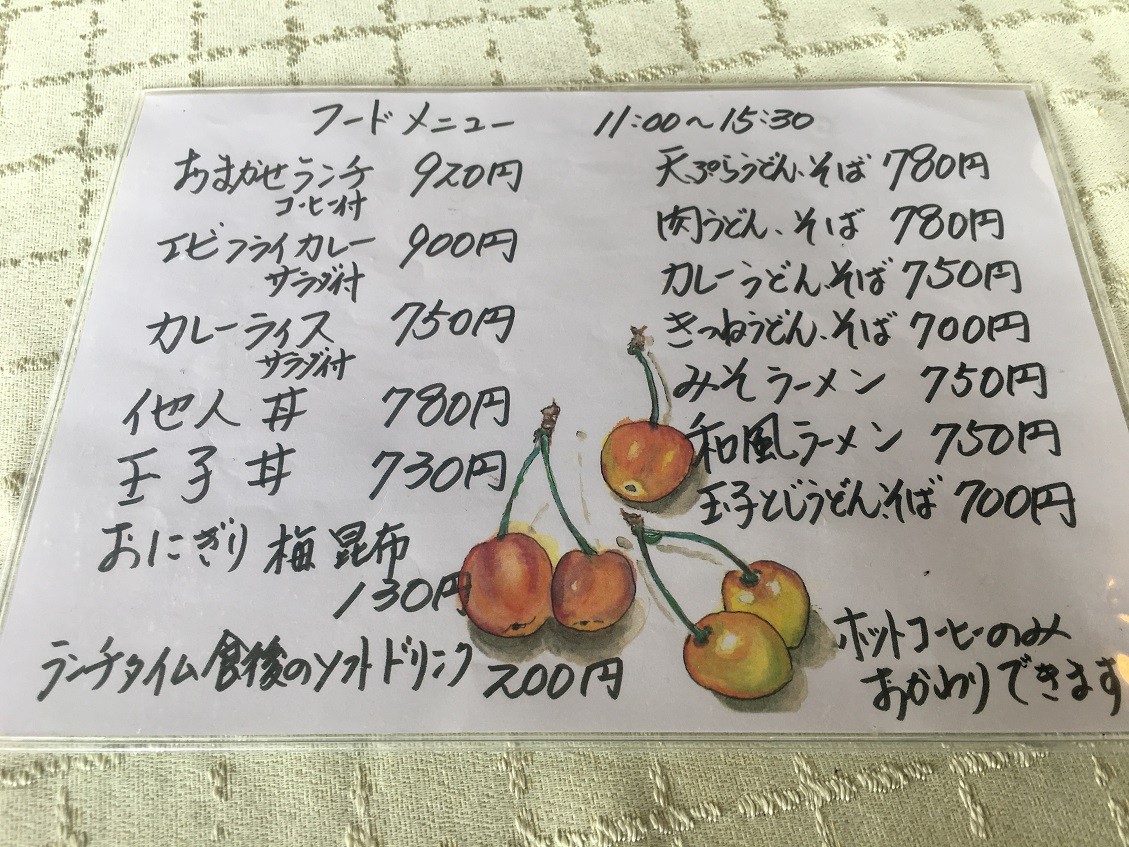 フードメニュー 11:00～15:30
おまかせランチ 920円
コーヒー付
エビフライカレー 900円
サラダ付
カレーライス 750円
サラダ付
他人丼 780円
玉子丼 730円
おにぎり 梅 昆布
130円
ランチタイム食後のソフトドリンク 200円
天ぷらうどん、そば 780円
肉うどん、そば 780円
カレーうどん、そば 750円
きつねうどん、そば 700円
みそラーメン 750円
和風ラーメン 750円
玉子とじうどん、そば 700円
ホットコーヒーのみ
おかわりできます